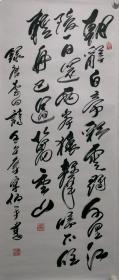 朝辭白帝彩雲間千里江
陵一日還兩岸猿聲啼不住
輕舟已過萬重山
錄唐李白詩